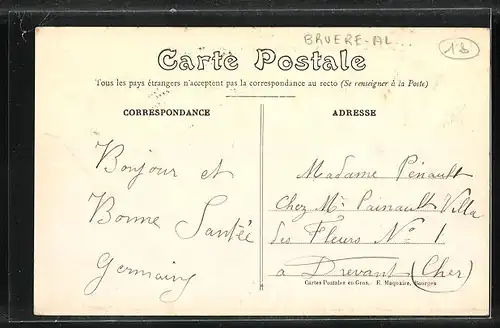 BRUERE-AL...
18
Carte Postale
Tous les pays étrangers n'acceptent pas la correspondance au recto (Se renseigner à la Poste)
CORRESPONDANCE
ADRESSE
Bonjour et
Bonne Santée
Germaine
Madame Penault
Chez Mr Painault Villa
des Fleurs No 1
à Drevant (Cher)
Cartes Postales en Gros. E. Maquaire, Bourges